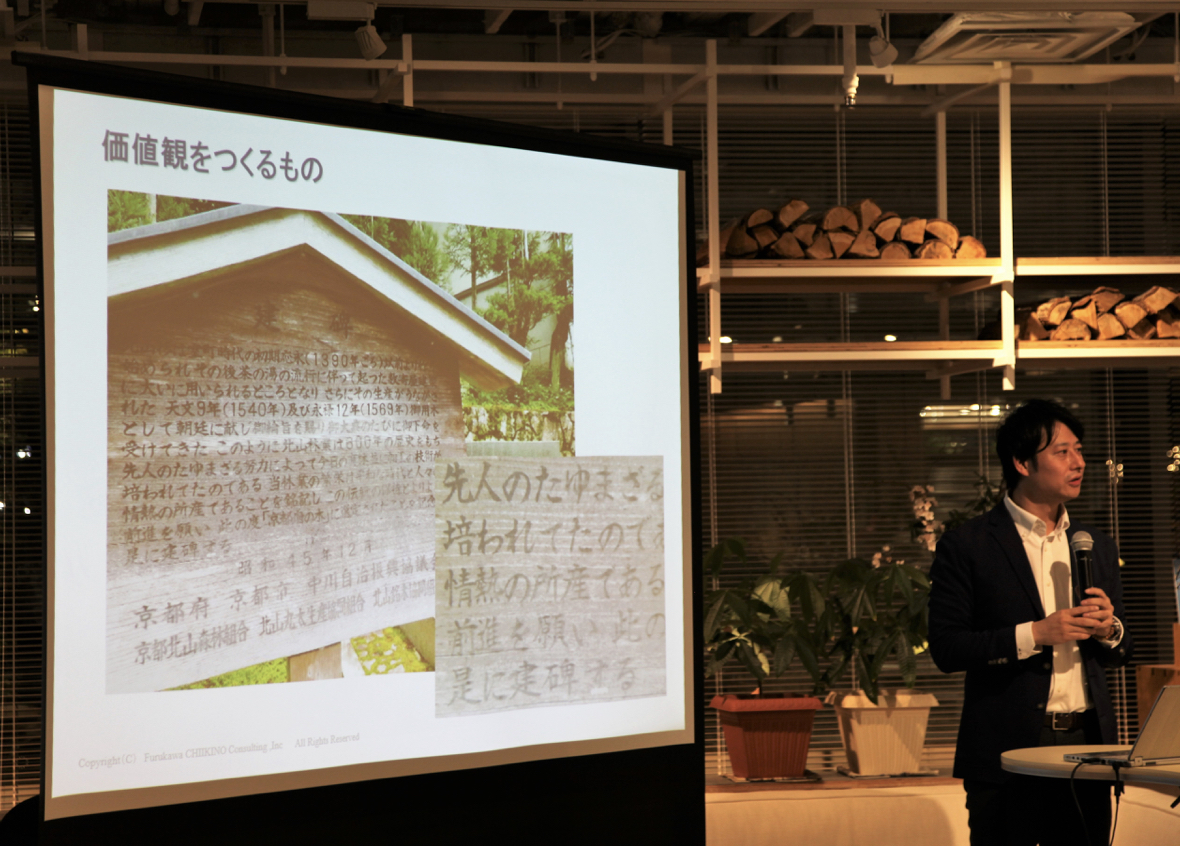 価値観をつくるもの
時代の初期応永(1390年ごろ)
められその後茶の湯の流行に伴って起った
に大いに用いられるところとなり さらにその生産が
れた 天文9年(1540年)及び永禄12年(1569年)御用木
として朝廷に献じ御綸旨を賜り のたびに御下命を
受けてきた このように北山林業は600年の歴史をもち
先人のたゆまざる努力によって今日の
培われてたのである 当林業の
情熱の所産であることを銘記しこの
前進を願い 此の度「京都府の木」に
是に建碑する
昭和45年12月
京都府 京都市 中川自治振興協議会
京都北山森林組合 北山丸太生産協同組合
先人のたゆまざる
培われてたのであ
情熱の所産である
前進を願い 此の
是に建碑する
Copyright(C) Furukawa CHIIKINO Consulting ,Inc All Rights Reserved